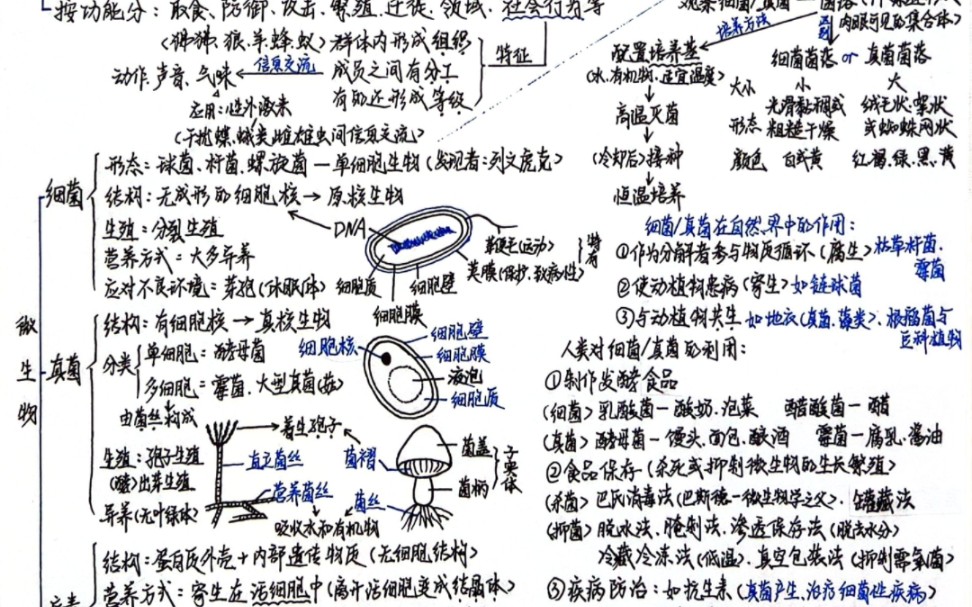 按功能分：取食、防御、攻击、繁殖、迁徙、领域、社会行为等
(狒狒、狼、羊、蜂、蚁) 群体内形成组织
动作、声音、气味
信息交流
成员之间有分工
有的还形成等级
特征
应用：性外激素
(干扰蝶、蛾类雌雄虫间信息交流)
培养方法
肉眼可见的集合体)
配置培养基
(水、有机物、适宜温度)
高温灭菌
(冷却后)接种
恒温培养
细菌菌落 or 真菌菌落
大小 小 大
形态 光滑黏稠或粗糙干燥 绒毛状、絮状或蜘蛛网状
颜色 白或黄 红、褐、绿、黑、黄
微生物
细菌
形态：球菌、杆菌、螺旋菌—单细胞生物 (发现者：列文虎克)
结构：无成形的细胞核→原核生物
生殖：分裂生殖
营养方式：大多异养
应对不良环境：芽孢(休眠体)
DNA
鞭毛(运动)
荚膜(保护、致病性)
特有
细胞质
细胞壁
细胞膜
真菌
结构：有细胞核→真核生物
分类
单细胞：酵母菌
多细胞：霉菌、大型真菌(菇)
由菌丝构成
细胞核
细胞壁
细胞膜
液泡
细胞质
生殖：孢子生殖
出芽生殖
异养(无叶绿体)
着生孢子
直立菌丝
营养菌丝
吸收水和有机物
菌褶
菌丝
菌盖
菌柄
子实体
结构：蛋白质外壳+内部遗传物质(无细胞结构)
营养方式：寄生在活细胞中(离开活细胞变成结晶体)
细菌/真菌在自然界中的作用：
①作为分解者参与物质循环(腐生) 枯草杆菌、霉菌
②使动植物患病(寄生)如链球菌
③与动植物共生 如地衣(真菌、藻类)、根瘤菌与豆科植物
人类对细菌/真菌的利用：
①制作发酵食品
(细菌) 乳酸菌—酸奶、泡菜 醋酸菌—醋
(真菌) 酵母菌—馒头、面包、酿酒 霉菌—腐乳、酱油
②食品保存(杀死或抑制微生物的生长繁殖)
(杀菌) 巴氏消毒法(巴斯德—微生物学之父)、罐藏法
(抑菌) 脱水法、腌制法、渗透保存法(脱去水分)
冷藏冷冻法(低温)、真空包装法(抑制需氧菌)
③疾病防治：如抗生素(真菌产生，治疗细菌性疾病)